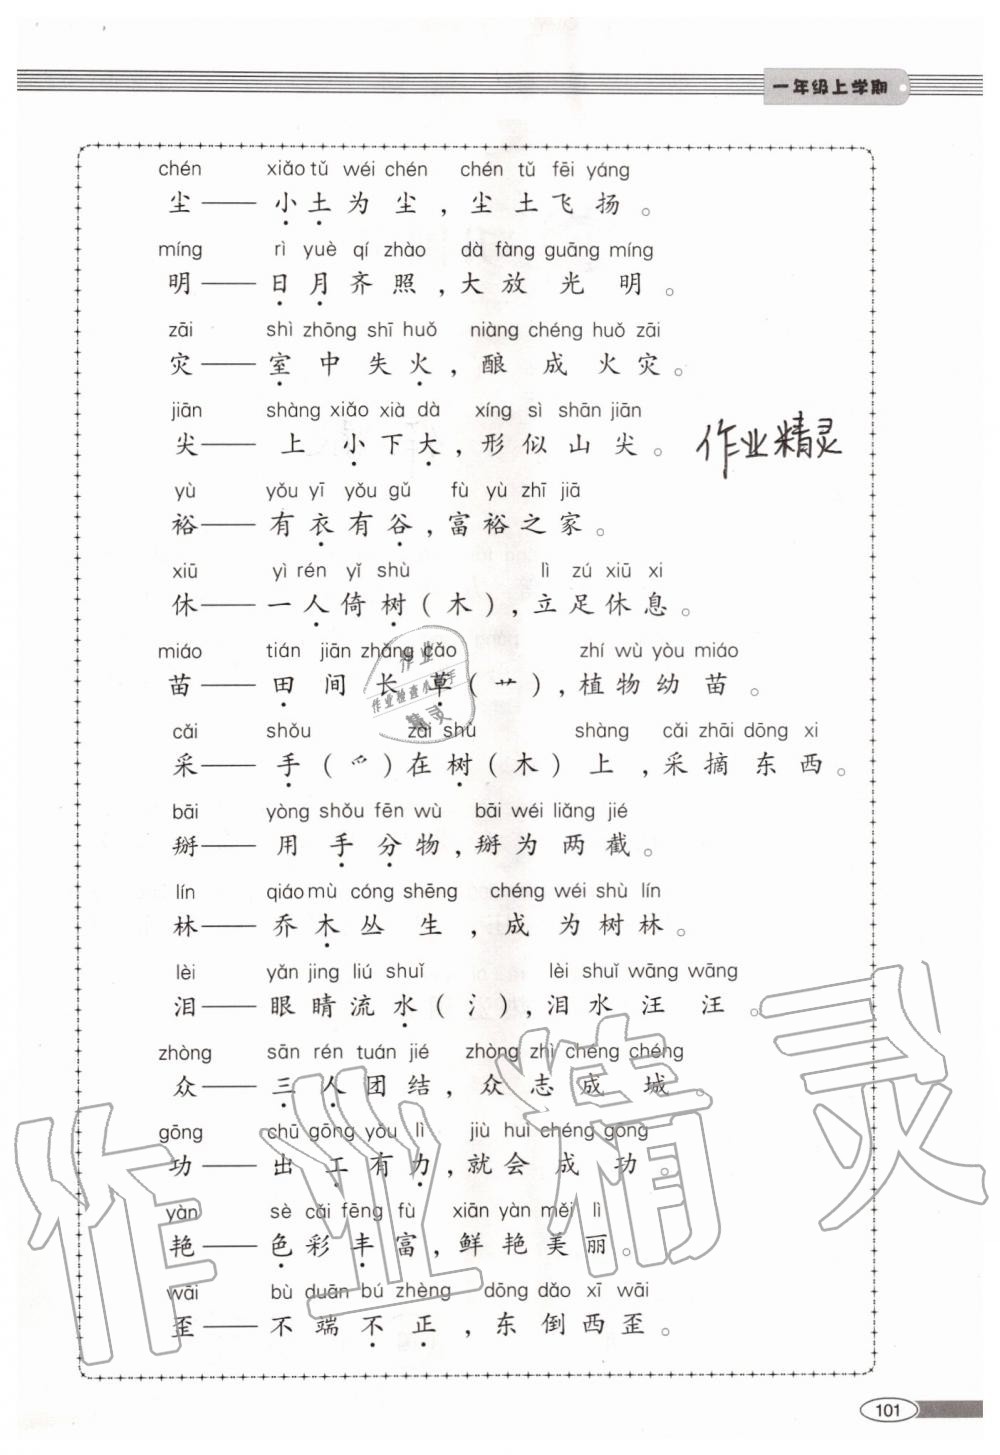 一年级上学期
chén xiǎo tǔ wéi chén chén tǔ fēi yáng
尘——小土为尘，尘土飞扬。
míng rì yuè qí zhào dà fàng guāng míng
明——日月齐照，大放光明。
zāi shì zhōng shī huǒ niàng chéng huǒ zāi
灾——室中失火，酿成火灾。
jiān shàng xiǎo xià dà xíng sì shān jiān
尖——上小下大，形似山尖。
作业精灵
yù yǒu yī yǒu gǔ fù yù zhī jiā
裕——有衣有谷，富裕之家。
xiū yì rén yǐ shù lì zú xiū xi
休——一人倚树（木），立足休息。
miáo tián jiān zhǎng cǎo zhí wù yòu miáo
苗——田间长草（艹），植物幼苗。
作业
作业检查小助手
精灵
cǎi shǒu zài shù shàng cǎi zhāi dōng xi
采——手（爫）在树（木）上，采摘东西。
bāi yòng shǒu fēn wù bāi wéi liǎng jié
掰——用手分物，掰为两截。
lín qiáo mù cóng shēng chéng wéi shù lín
林——乔木丛生，成为树林。
lèi yǎn jing liú shuǐ lèi shuǐ wāng wāng
泪——眼睛流水（氵），泪水汪汪。
zhòng sān rén tuán jié zhòng zhì chéng chéng
众——三人团结，众志成城。
gōng chū gōng yǒu lì jiù huì chéng gōng
功——出工有力，就会成功。
yàn sè cǎi fēng fù xiān yàn měi lì
艳——色彩丰富，鲜艳美丽。
wāi bù duān bú zhèng dōng dǎo xī wāi
歪——不端不正，东倒西歪。
作业精灵
101